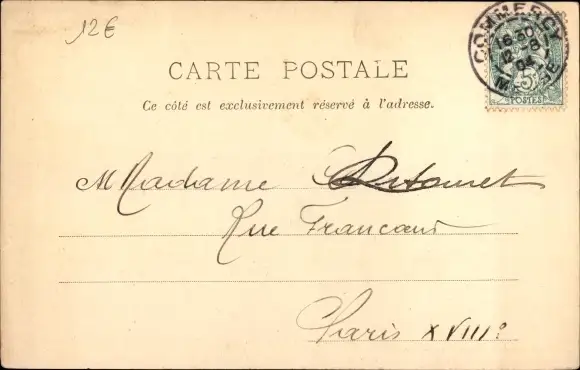 12€
COMMERCY
16 30
12 -8
04
MEUSE
5
POSTES
CARTE POSTALE
Ce côté est exclusivement réservé à l'adresse.
Madame
Rue
Paris XVIIIe